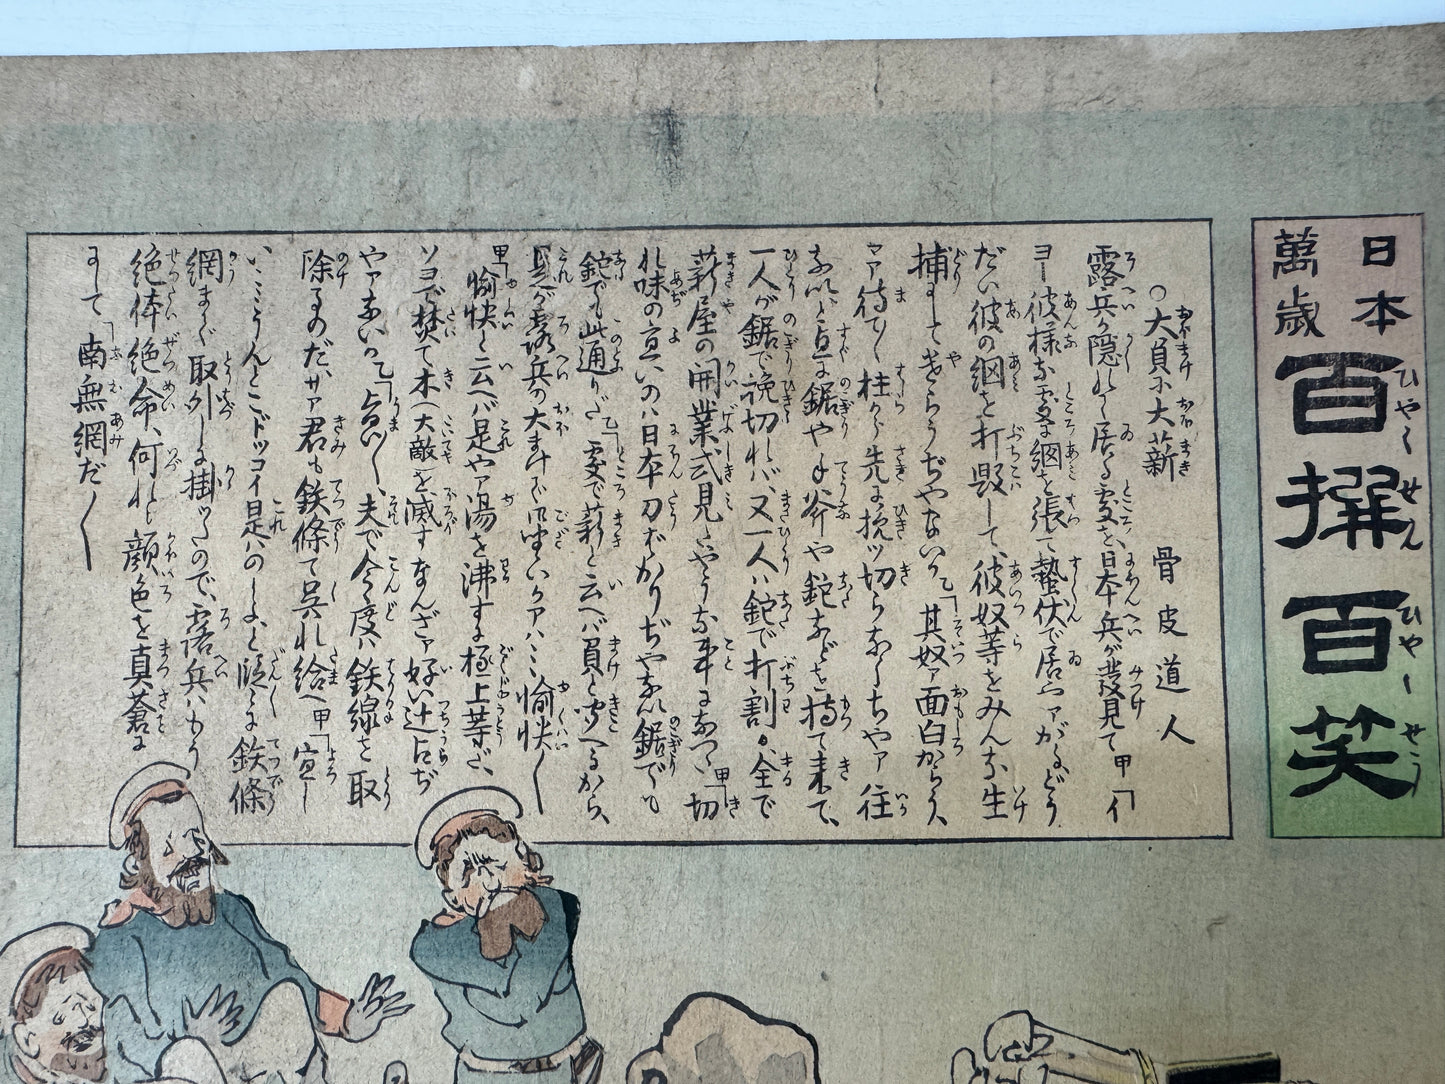 日本
萬歳
百撰百笑
ひやくせんひやくせう
○大負に大薪　骨皮道人
露兵が隠れて居る處を、日本兵が發見て甲「イ
ヨー彼様な處に網を張て蟄伏で居やアがる、どう
だい彼の網を打毀して、彼奴等をみんな生
捕にして遣らうぢやないか乙「其奴ア面白からう、
マア待て〱柱から先に挽ッ切らなくちやア往
ないと直に鋸や手斧や鉈などを持て来て、
一人が鋸で挽切れバ、又一人ハ鉈で打割る、全で
薪屋の開業式見たやうな事になつて甲「切
れ味の宜いのハ日本刀ばかりぢやない鋸でも
鉈でも此通りだ乙「處で薪と云へバ負と聞へるから、
是が露兵の大まけで御座いかアハヽヽ愉快〱
甲「愉快と云へバ是や湯を沸すに極上等だ、
ソコで焚て木（大敵を滅すなんざア好い辻占ぢ
やアないか乙「旨い〱、夫で今度ハ鉄線を取
除るのだ、サア君も鉄條て呉れ給へ甲「宜し
い、こうんとこドッコイ是ハのしよと、段々に鉄條
網まで取外しに掛ッたので、露兵ハもう
絶体絶命、何れも顔色を真蒼に
して「南無網だ〱〱